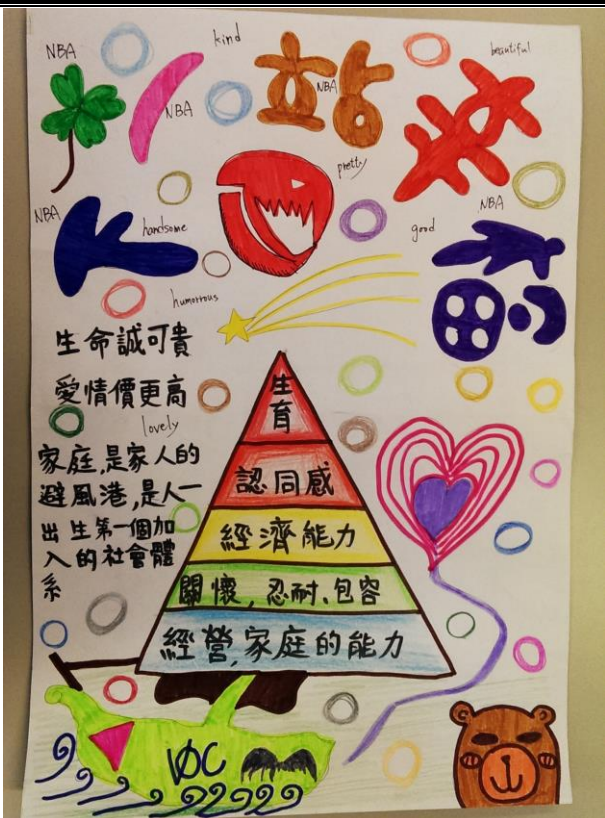 NBA
kind
beautiful
NBA
NBA
pretty
NBA
handsome
good
NBA
humorrous
生命誠可貴
愛情價更高
lovely
家庭,是家人的
避風港,是人一
出生第一個加
入的社會體
系
生
育
認同感
經濟能力
關懷,忍耐、包容
經營,家庭的能力